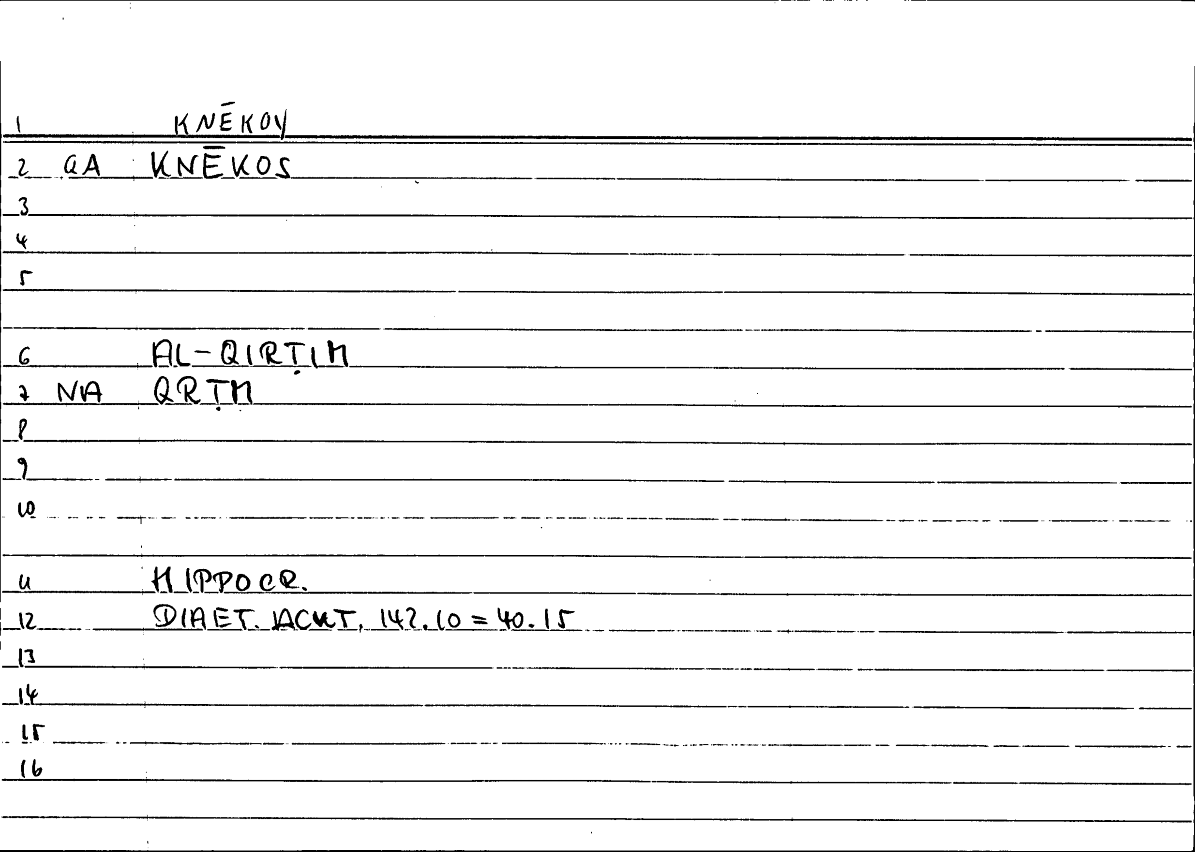 1 KNĒKOY
2 GA KNĒKOS
3
4
5
6 AL-QIRṬIM
7 NA QRṬM
8
9
10
11 HIPPOCR.
12 DIAET. ACUT. 142.10 = 40.15
13
14
15
16